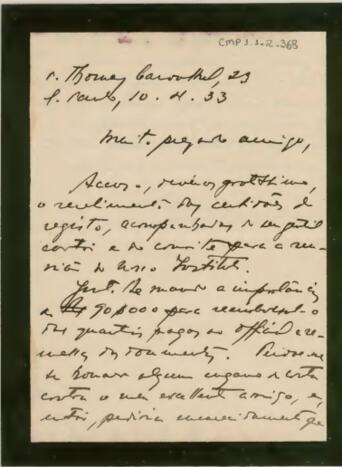 CMP 1.1.2.363
r. Thomaz Carvalhal, 23
S. Paulo, 10.4.33
Muito prezado amigo,
Accuso, devéras gratissimo,
o recebimento das certidões de
registo, acompanhadas de seu gentil
cartão e do convite para a reu-
nião do nosso Instituto.
Junto lhe mando a importancia
de 90$000 para reembolsal-o
das quantias pagas ao official e re-
messa dos documentos. Perdoe-me
se houver algum engano de conta
contra o meu excellente amigo, e,
então, pediria encarecidamente que